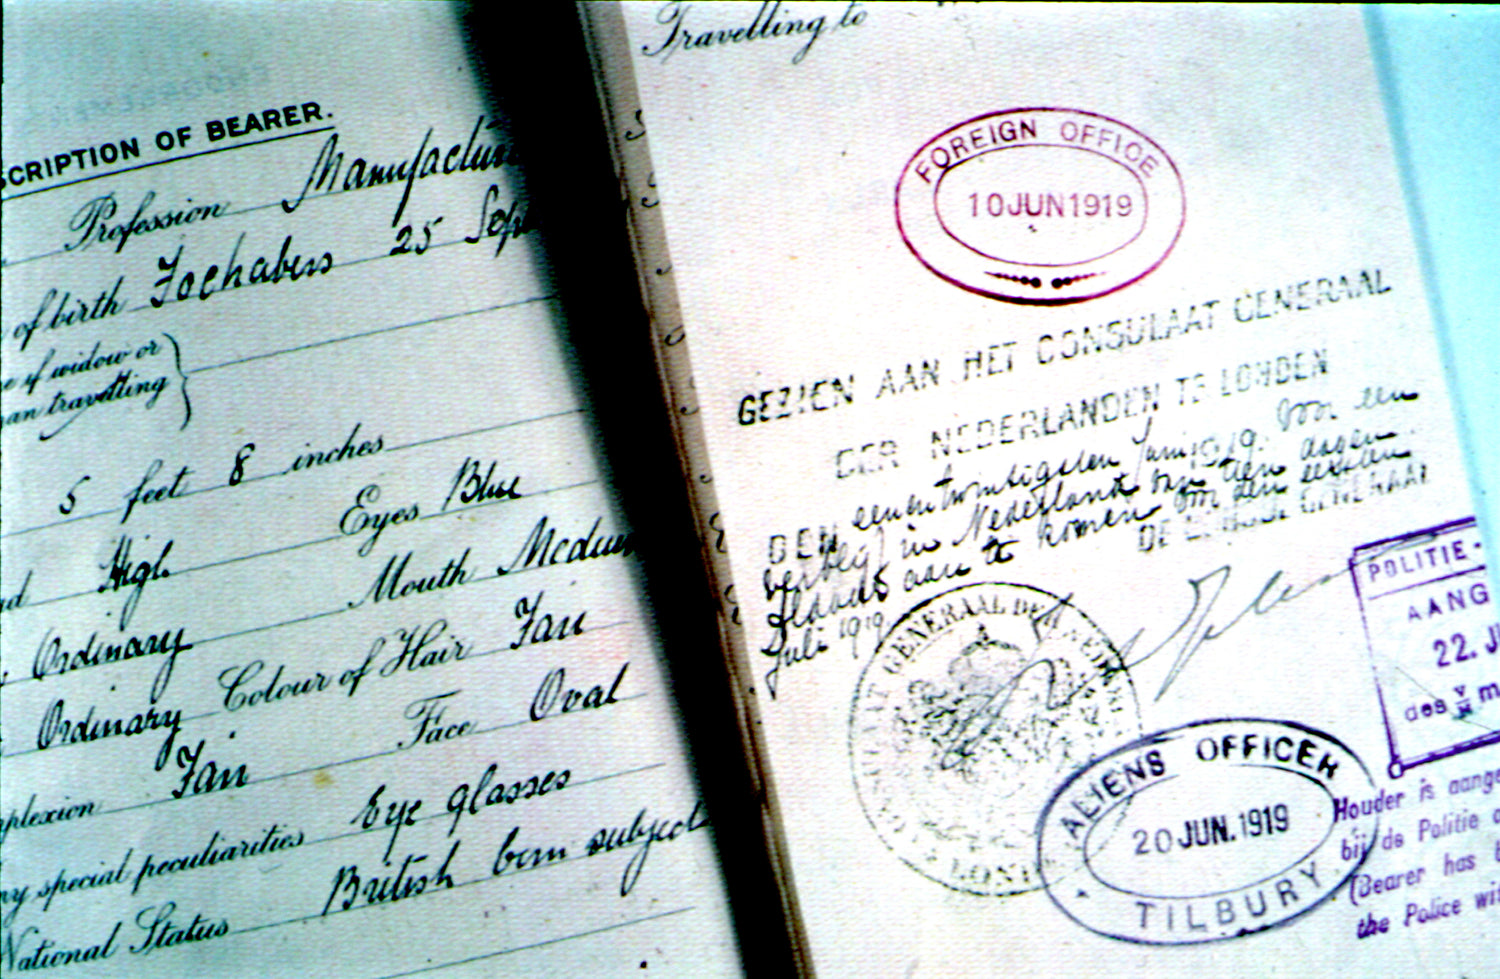 SCRIPTION OF BEARER.
Profession Manufactur
of birth Fochabers 25 Sept
e if widow or
an travelling
5 feet 8 inches
Eyes Blue
High Mouth Medium
Ordinary Colour of Hair Fair
Ordinary Face Oval
plexion Fair
ny special peculiarities Eye glasses
National Status British born subject
Travelling to
FOREIGN OFFICE
10 JUN 1919
GEZIEN AAN HET CONSULAAT GENERAAL
DER NEDERLANDEN TE LONDEN
DEN eenentwintigsten Juni 1919. Voor een
verblijf in Nederland van tien dagen
aan te komen voor den eersten
Juli 1919.
DE GENERAAL
CONSULAAT GENERAAL DER NEDER
LOND
POLITIE-
AANG
22. JU
des v/m m
ALIENS OFFICER
20 JUN. 1919
TILBURY
Houder is aange
bij de Politie
(Bearer has
the Police wit